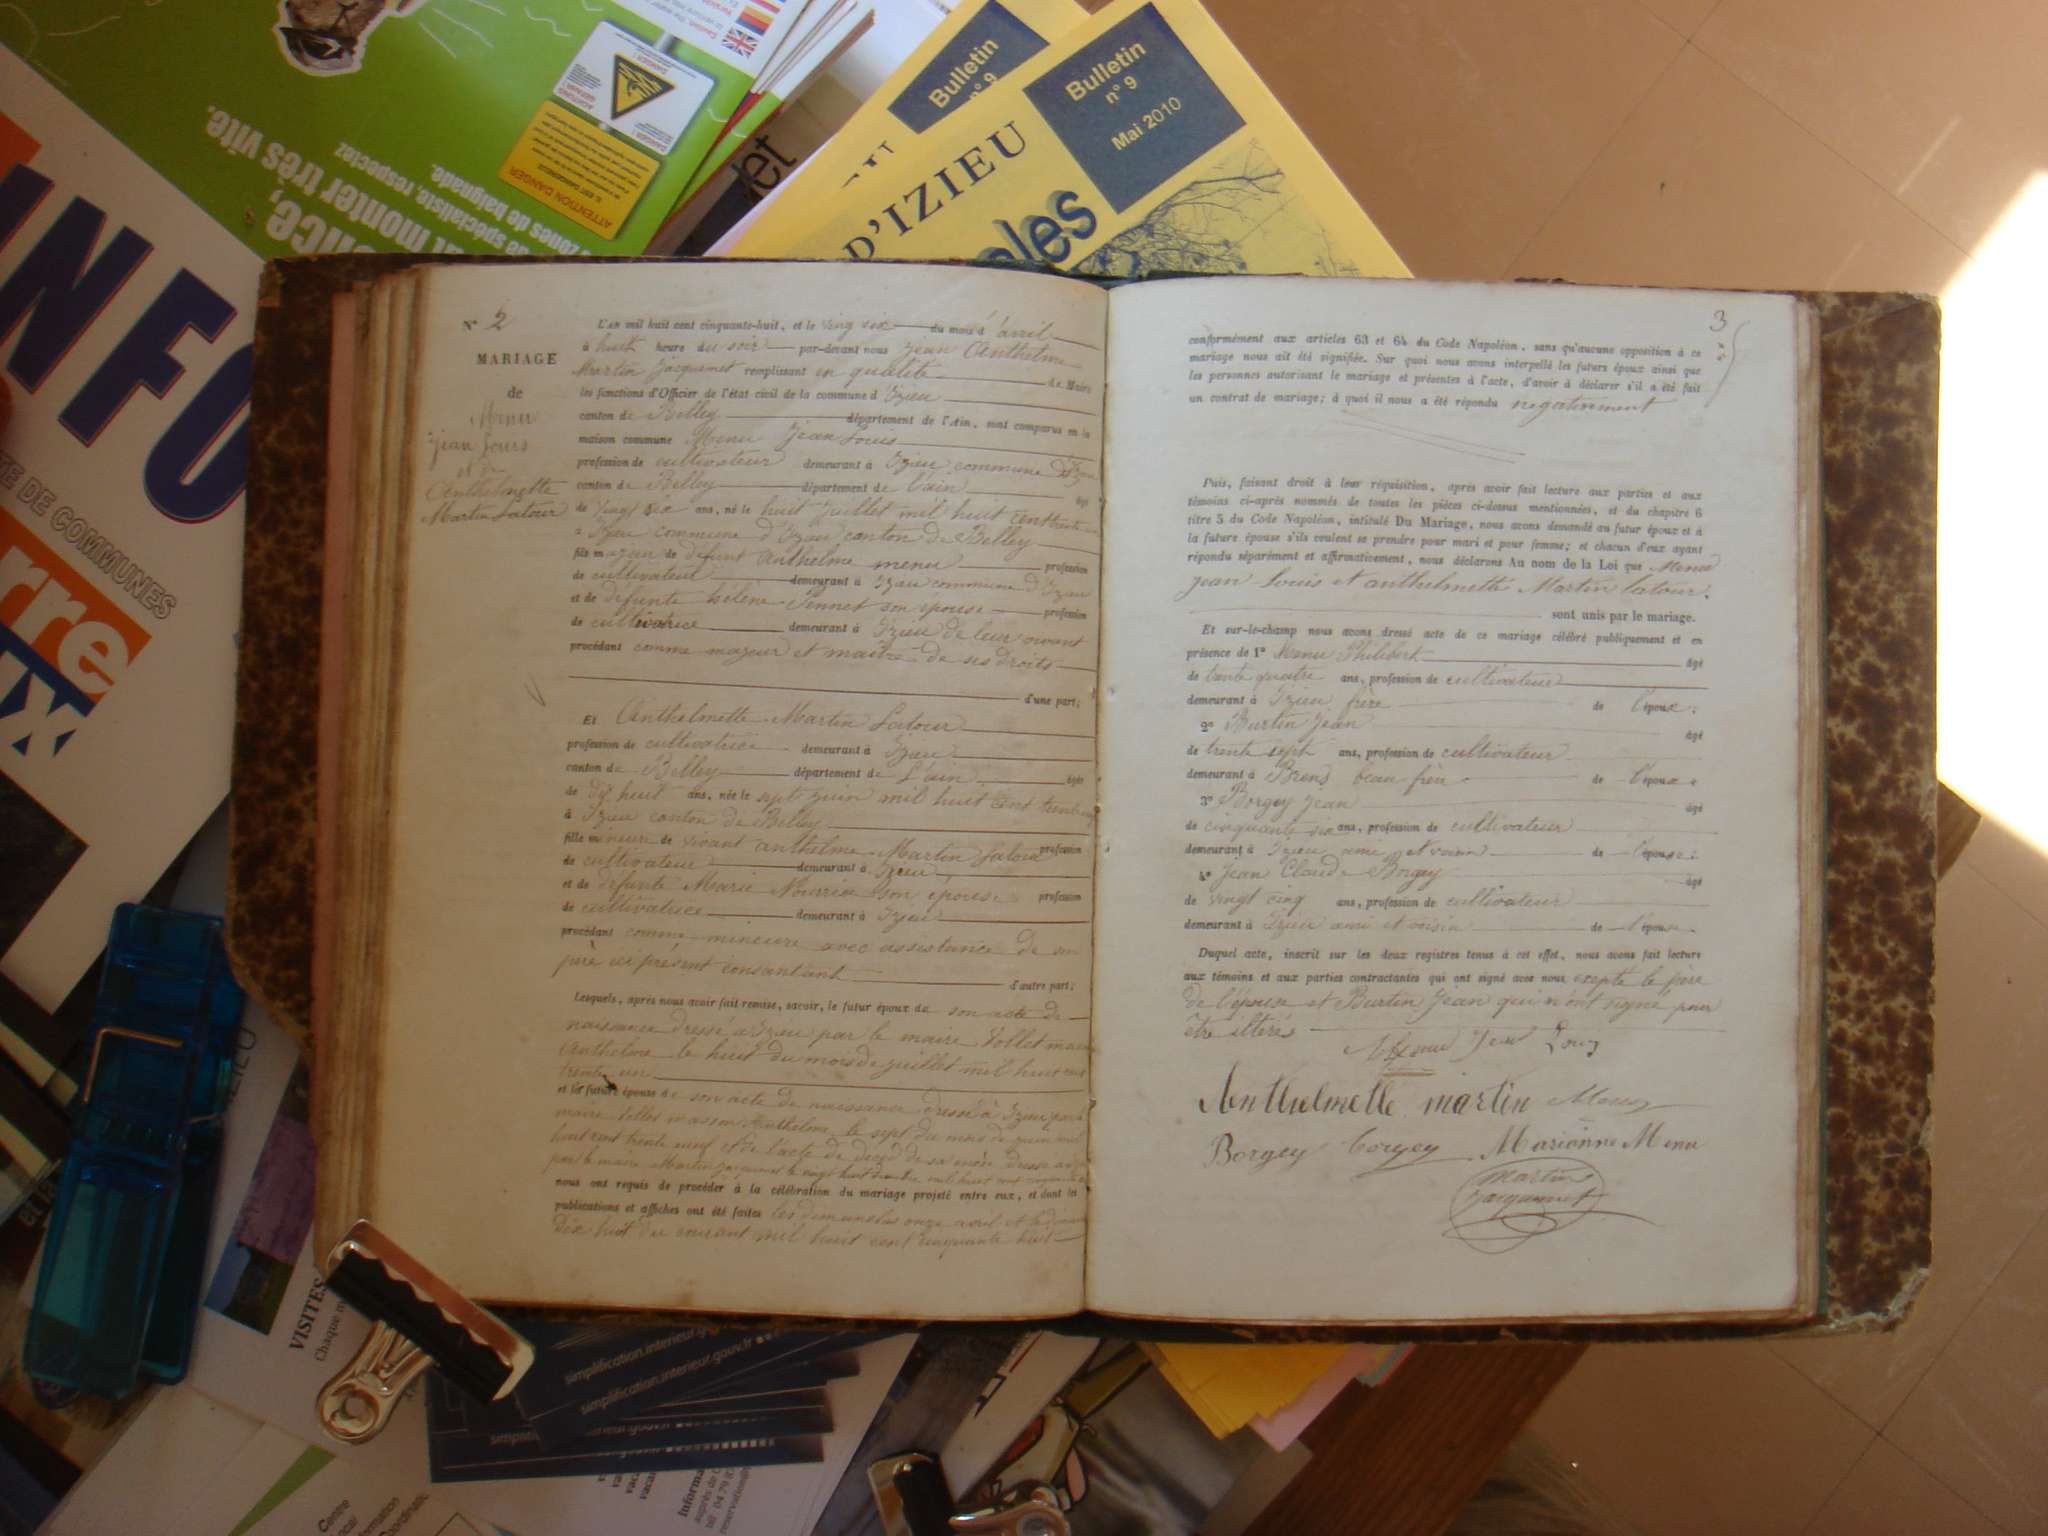 Bulletin
n° 9
Bulletin
n° 9
Mai 2010
D'IZIEU
INFO
DANGER
ATTENTION DANGER
monter très vite.
spécialiste, respectez
zones de baignade.
TE DE COMMUNES
N° 2
MARIAGE
de
Menu
Jean Louis
et de
Anthelmette
Martin Latour
L'AN mil huit cent cinquante-huit, et le vingt six du mois d'avril
à huit heure du soir par-devant nous Jean Anthelme
Martin Jacquemet remplissant en qualité de Maire
les fonctions d'Officier de l'état civil de la commune d'Izieu
canton de Belley département de l'Ain, sont comparus en la
maison commune Menu Jean Louis
profession de cultivateur demeurant à Izieu commune d'Izieu
canton de Belley département de l'ain âgé
de vingt six ans, né le huit juillet mil huit cent trente un
à Izieu commune d'Izieu canton de Belley
fils majeur de défunt Anthelme menu profession
de cultivateur demeurant à Izieu commune d'Izieu
et de défunte hélène son épouse profession
de cultivatrice demeurant à Izieu de leur vivant
procédant comme majeur et maitre de ses droits
d'une part;
Et Anthelmette Martin Latour
profession de cultivatrice demeurant à Izieu
canton de Belley département de L'ain âgée
de dix huit ans, née le sept juin mil huit cent trente neuf
à Izieu canton de Belley
fille mineure de vivant anthelme Martin Latour profession
de cultivateur demeurant à Izieu
et de défunte Marie son épouse profession
de cultivatrice demeurant à Izieu
procédant comme mineure avec assistance de son
père ici présent consantant
d'autre part;
Lesquels, après nous avoir fait remise, savoir, le futur époux de son acte de
naissance dressé à Izieu par le maire
Anthelme le huit du mois de juillet mil huit cent
trente un
et la future épouse de son acte de naissance dressé à Izieu par le
maire Anthelme le sept du mois de juin mil
huit cent trente neuf et de l'acte de décès de sa mère dressé
par le maire Martin Jacquemet le vingt huit mil huit cent cinquante
nous ont requis de procéder à la célébration du mariage projeté entre eux, et dont les
publications et affiches ont été faites les dimanches onze avril et
Dix huit du courant mil huit cent cinquante huit
3
conformément aux articles 63 et 64 du Code Napoléon, sans qu'aucune opposition à ce
mariage nous ait été signifiée. Sur quoi nous avons interpellé les futurs époux ainsi que
les personnes autorisant le mariage et présentes à l'acte, d'avoir à déclarer s'il a été fait
un contrat de mariage; à quoi il nous a été répondu negativement
Puis, faisant droit à leur réquisition, après avoir fait lecture aux parties et aux
témoins ci-après nommés de toutes les pièces ci-dessus mentionnées, et du chapitre 6
titre 5 du Code Napoléon, intitulé Du Mariage, nous avons demandé au futur époux et à
la future épouse s'ils veulent se prendre pour mari et pour femme; et chacun d'eux ayant
répondu séparément et affirmativement, nous déclarons Au nom de la Loi que Menu
jean Louis et anthelmette Martin latour.
sont unis par le mariage.
Et sur-le-champ nous avons dressé acte de ce mariage célébré publiquement et en
présence de 1° Menu Philibert âgé
de trente quatre ans, profession de cultivateur
demeurant à Izieu frère de l'époux;
2° Burtin Jean âgé
de trente sept ans, profession de cultivateur
demeurant à Brens beau frère de l'époux
3° Borgey Jean âgé
de cinquante six ans, profession de cultivateur
demeurant à Izieu ami et voisin de l'épouse
4° Jean Claude Borgey âgé
de vingt cinq ans, profession de cultivateur
demeurant à Izieu ami et voisin de l'épouse.
Duquel acte, inscrit sur les deux registres tenus à cet effet, nous avons fait lecture
aux témoins et aux parties contractantes qui ont signé avec nous exepté le père
de l'épouse et Burtin Jean qui n'ont signé pour
être illitérés
Menu Jean Louis
Anthelmette martin Menu
Borgey Borgey Marionne Menu
Martin
Jacquemet
VISITES
Chaque
simplification.interieur.gouv.fr
simplification.interieur.gouv.fr
Centre